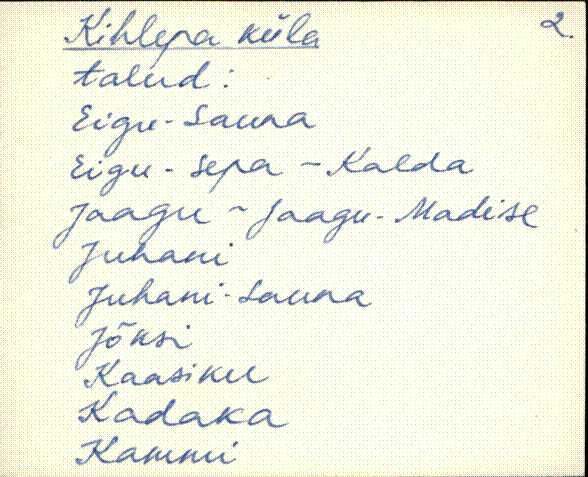 Kihlepa küla 2.
talud:
Eigu-Sauna
Eigu-Sepa ~ Kalda
Jaagu ~ Jaagu-Madise
Juhani
Juhani-Sauna
Jõksi
Kaasiku
Kadaka
Kammi